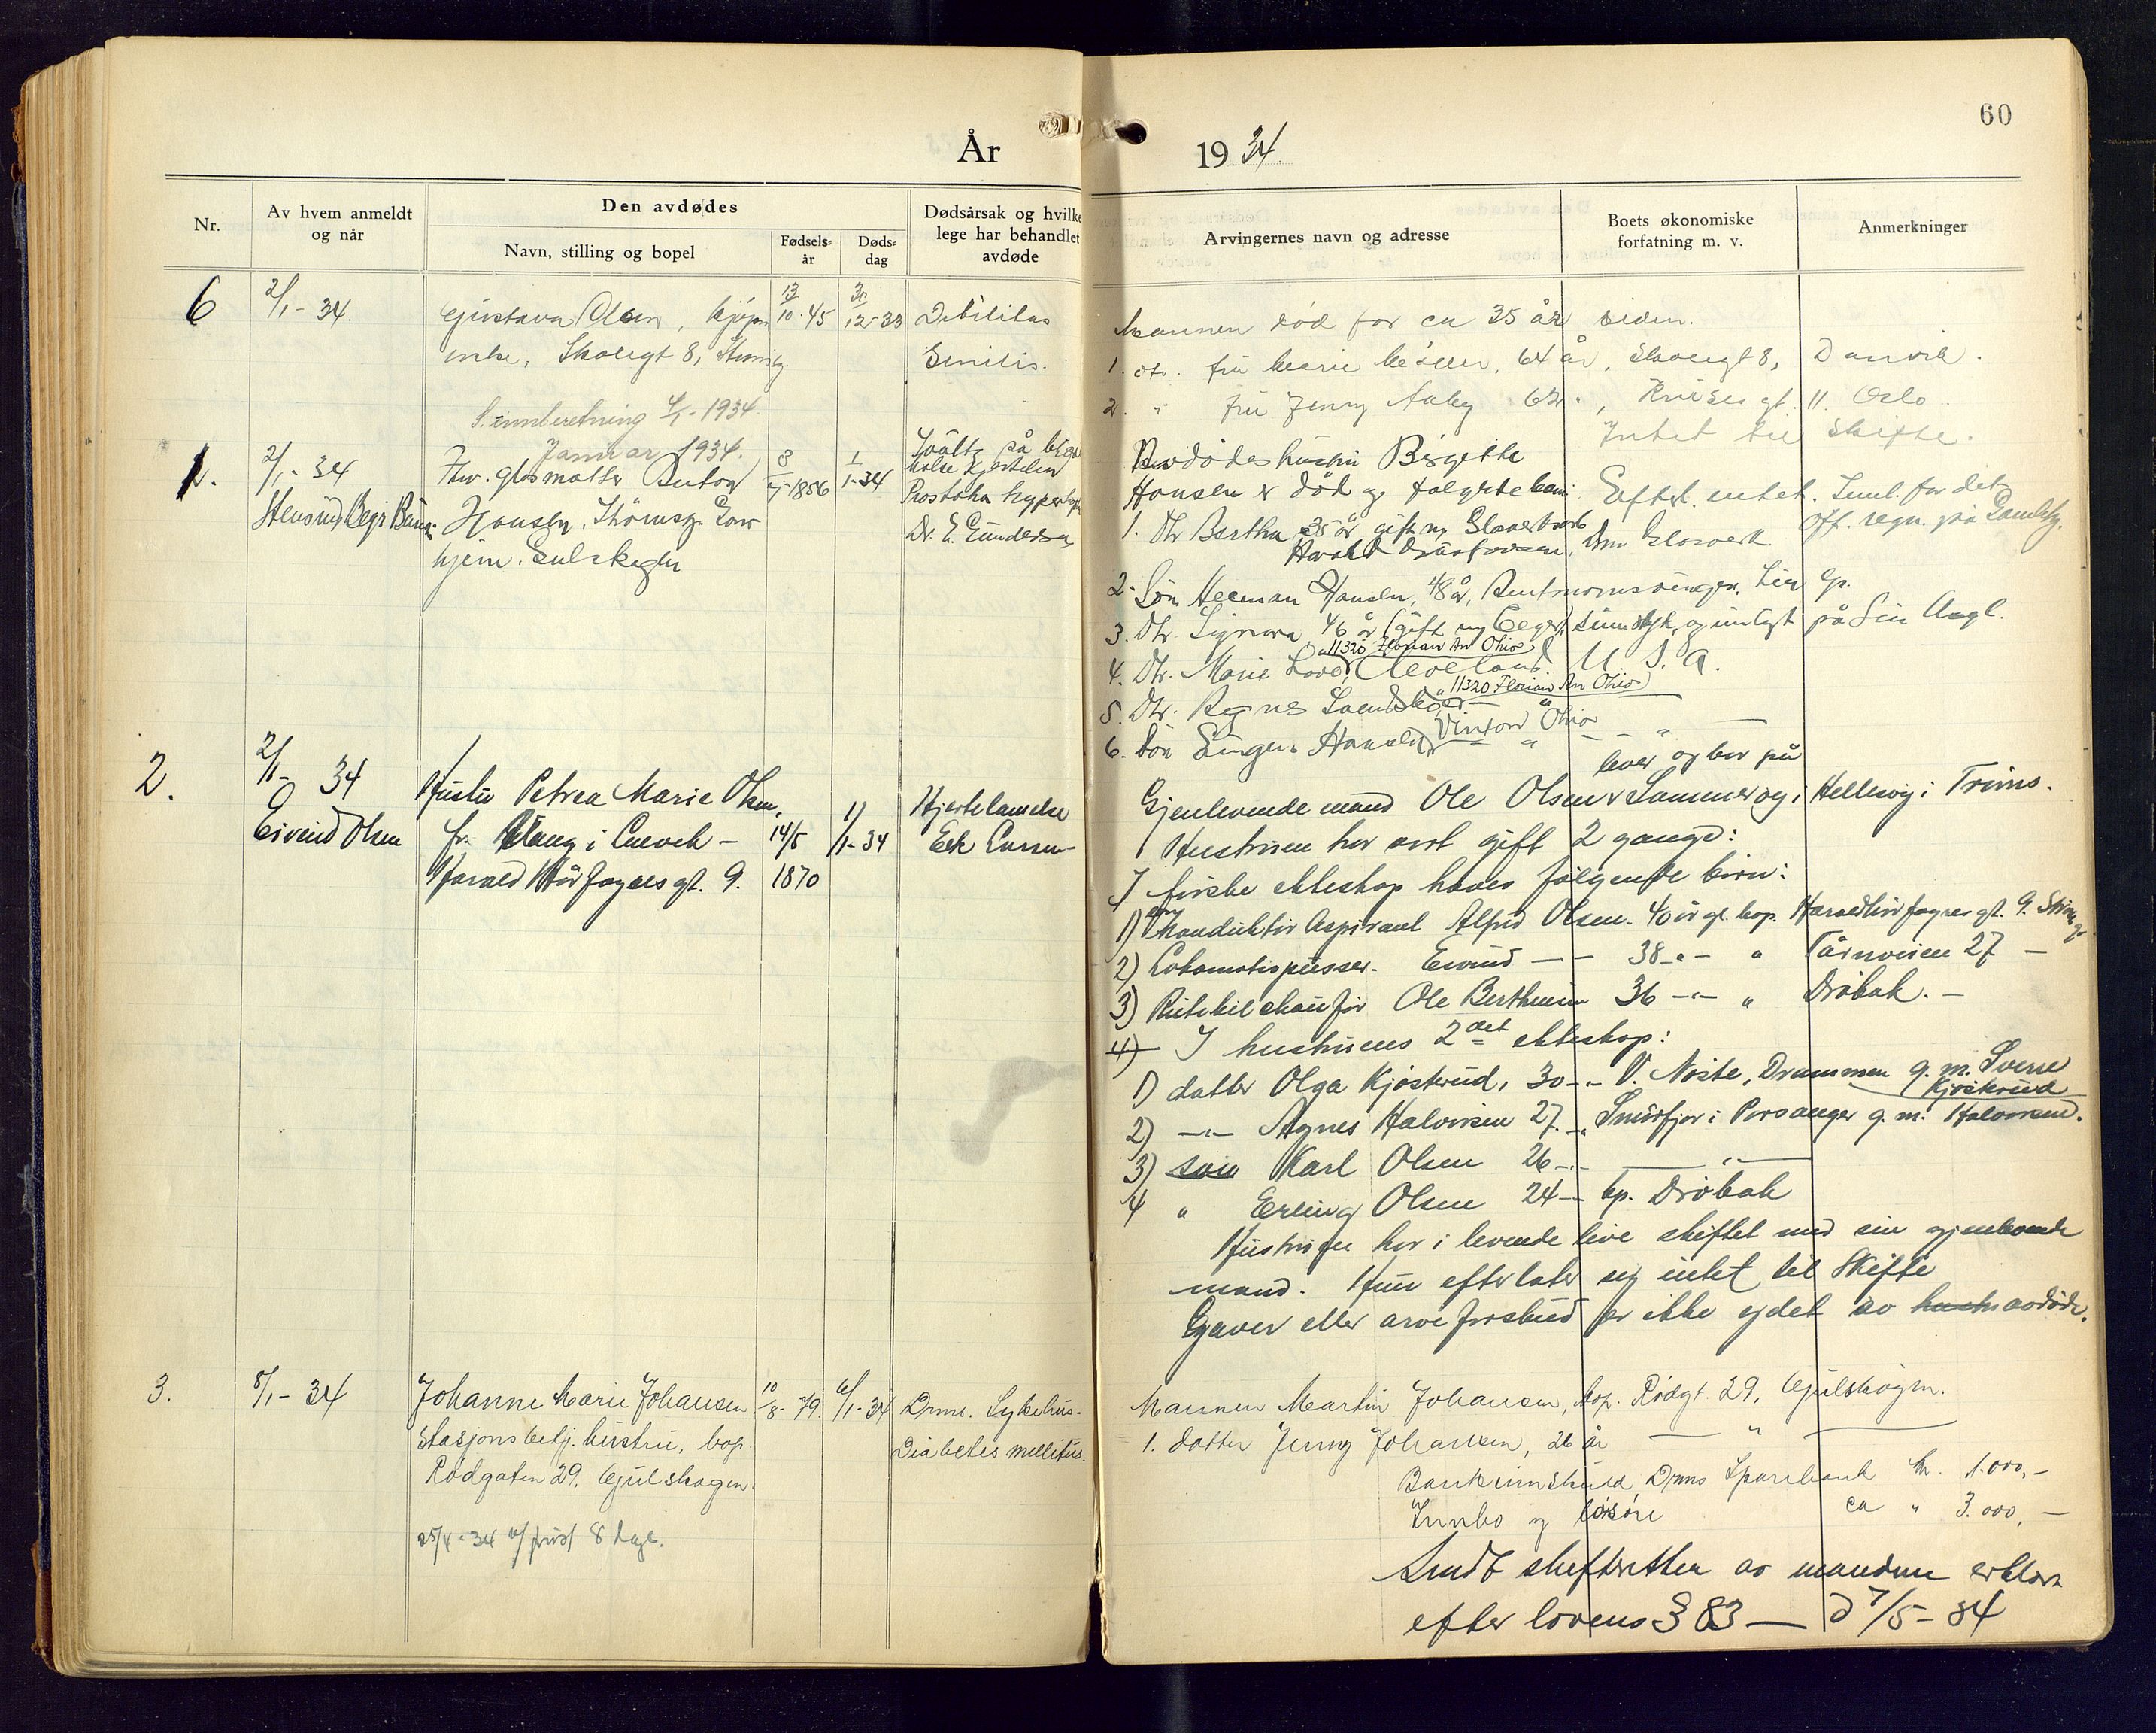 60
År 1934.
Nr.
Av hvem anmeldt
og når
Den avdødes
Navn, stilling og bopel
Fødsels-
år
Døds-
dag
Dødsårsak og hvilke
lege har behandlet
avdøde
Arvingernes navn og adresse
Boets økonomiske
forfatning m. v.
Anmerkninger
6
2/1-34.
Gustava Olsen,
enke, Skolegt 8,
13/10-45
30/12-33
Debilitas
Senilis.
Mannen død for ca 35 år siden.
1. dtr. fru Marie 64 år, Skolegt 8, Danvik.
2. " fru Jenny Aaby 62 " , gt. 11. Oslo.
Intet til skifte.
Innberetning 4/1-1934.
Januar 1934.
1.
2/1-34
Stensrud Begr. Byrå
Fhv. glasmaster Anton
Hansen,
hjem. Gulskogen
3/ -1856
1/1-34
Prostata hypertrofi
Dr. E. Gundersen
Avdødes hustru Birgitte
Hansen er død og følgende barn
Efterl. intet.
1. Dtr Bertha 35 år, gift m/ Glassverksarb
Harald Gustavsen, Drm. Glasverk
2. Søn Herman Hansen, 48 år, Lier
3. Dtr. Signora, 46 år (gift m/
11320 Florian Av Ohio
4. Dtr. Marie Cleveland U. S. A.
11320 Florian Av Ohio
5. Dtr. Agnes
6. Søn Hansen Ohio
2.
2/1- 34
Eivind Olsen
Hustru Petrea Marie Olsen,
fr. Haug i
Harald Hårfagres gt. 9.
14/5
1870
1/1-34
Hjertelamelse
Eek Larsen
lever og bor på
Gjenlevende mand Ole Olsen Hellesvig i Troms.
Hustruen har vært gift 2 gange:
I første ekteskap haves følgende børn:
1) Konduktør Aspirant Alfred Olsen. 40 år gl. bop. Harald Hårfagres gt. 9.
2) Lokomotivpusser. Eivind — " — 38 - " - " Tårnveien 27 —
3) Rutebilchaufør Ole Berthinius 36 - " - " Drøbak. —
4) I hustruens 2det ekteskap:
1) datter Olga Kjøsterud, 30 - " - V. Nøste, Drammen g. m. Sverre
Kjøsterud
2) — " — Agnes Halvorsen 27 - " Snurfjor i Porsanger g. m. Halvorsen.
3) søn Karl Olsen 26 - " - — " —
4 " Erling Olsen 24 — bp. Drøbak
Hustruen har i levende live skiftet med sin gjenlevende
mand. Hun efterlater sig intet til Skifte
Gaver eller arveforskud er ikke ydet av hustr avdøde.
3.
8/1-34
Johanne Marie Johansen
Stasjonsbetj. hustru, bop.
Rødgaten 29, Gulskogen.
10/8-79
6/1-34
Drms. Sykehus.
Diabetes mellitus.
25/4-34 8 dage.
Mannen Martin Johansen, bop. Rødgt. 29, Gulskogen.
1. datter Jenny Johansen, 26 år — " —
Bankinnskudd Drms Sparebank kr. 1.000,-
Innbo og løsøre ca " 3.000,-
Sendt skifteretten av mandens erklær
efter lovens § 83 — d 7/5-34